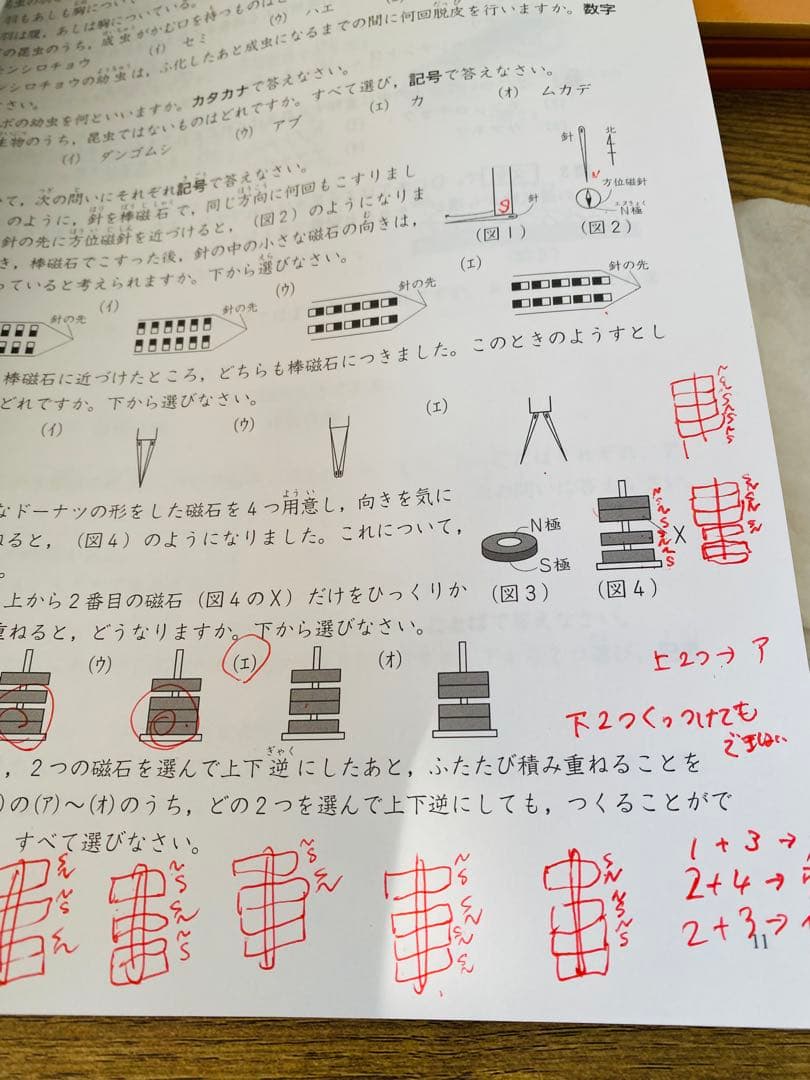 羽もあしも胸について
羽は腹，あしは胸についている。
の昆虫のうち，成虫がかむ口を持つものは
(イ) セミ (ウ) ハエ
ンシロチョウ
ンシロチョウの幼虫は，ふ化したあと成虫になるまでの間に何回脱皮を行いますか。数字
さい。
ボの幼虫を何といいますか。カタカナで答えなさい。
生物のうち，昆虫ではないものはどれですか。すべて選び，記号で答えなさい。
(イ) ダンゴムシ (ウ) アブ (エ) カ (オ) ムカデ
いて，次の問いにそれぞれ記号で答えなさい。
のように，針を棒磁石で，同じ方向に何回もこすりまし
針の先に方位磁針を近づけると，(図2)のようになりま
き，棒磁石でこすった後，針の中の小さな磁石の向きは，
っていると考えられますか。下から選びなさい。
針
(図1)
針 北
N
方位磁針
N極
(図2)
針の先 (イ) 針の先 (ウ) 針の先 (エ) 針の先
棒磁石に近づけたところ，どちらも棒磁石につきました。このときのようすとし
どれですか。下から選びなさい。
(イ) (ウ) (エ)
なドーナツの形をした磁石を4つ用意し，向きを気に
ねると，(図4)のようになりました。これについて，
。
N極
S極
(図3)
X
(図4)
上から2番目の磁石(図4のX)だけをひっくりか
重ねると，どうなりますか。下から選びなさい。
(ウ) (エ) (オ)
上2つ→ ア
下2つくっつけても
，2つの磁石を選んで上下逆にしたあと，ふたたび積み重ねることを
)の(ア)～(オ)のうち，どの2つを選んで上下逆にしても，つくることがで
すべて選びなさい。
1+3→
2+4→
2+3→
11